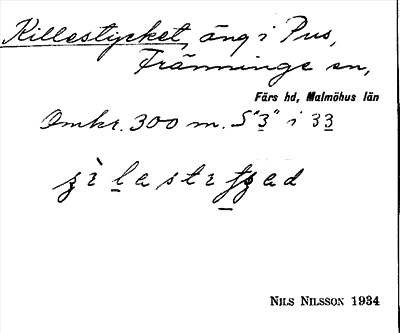 Killestycket, äng i Pus,
Tränninge sn,
Färs hd, Malmöhus län
Omkr. 300 m. S "3" i 33
NILS NILSSON 1934